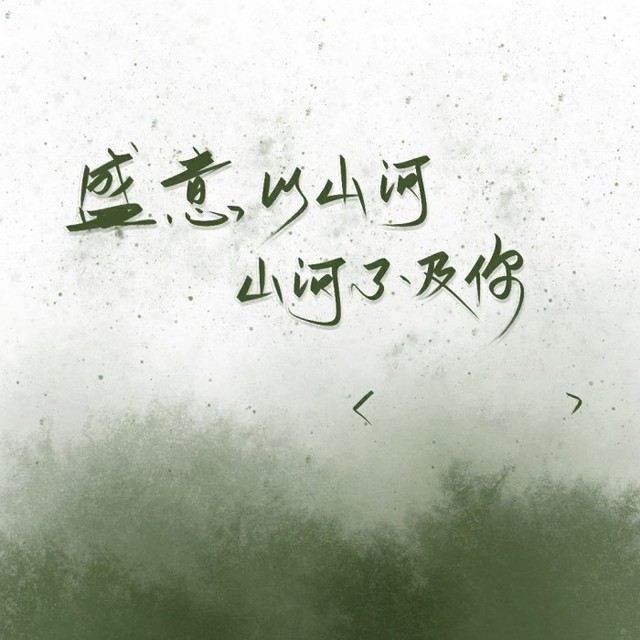 盛意以山河
山河不及你
< >